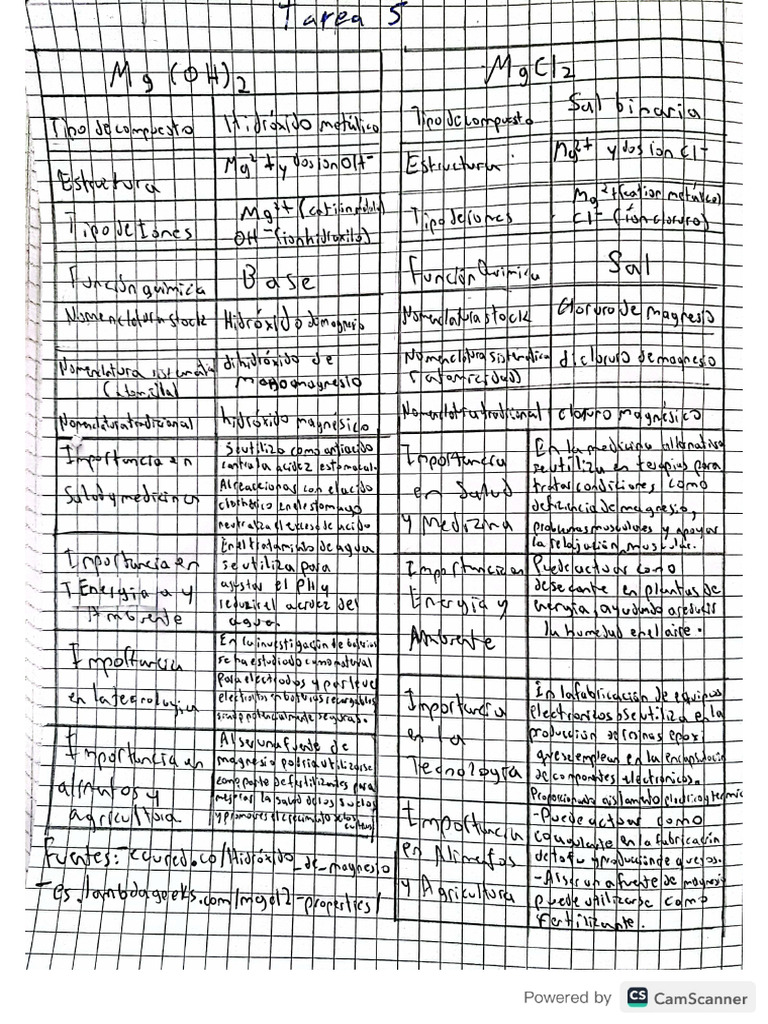 Tarea 5
Mg(OH)2
Tipo de compuesto
Hidróxido metálico
Estructura
Mg2+ y dos ion OH-
Tipo de Iones
Mg2+ (
OH- (ion hidroxilo)
Función química
Base
Nomenclatura stock
Hidróxido de magnesio
Nomenclatura
dihidróxido de
magnesio
Nomenclatura tradicional
hidróxido magnésico
Importancia en
Salud y medicina
Se utiliza como antiácido
acidez estomacal.
Al reaccionar con el acido
en el estomago
neutraliza el exceso de acido
Importancia en
Energía y
Ambiente
En el tratamiento de agua
se utiliza para
ajustar el PH y
reducir el acidez del
agua.
Importancia
en la tecnología
En la investigación de
se ha estudiado como material
para electrodos y
Importancia en
y
agricultura
Al ser una fuente de
magnesio podria utilizarse
como parte de fertilizantes para
mejorar la salud de los suelos
y promover el crecimiento
Fuentes:- ecured.co/Hidróxido_de_magnesio
-es.lambdageeks.com/mgcl2-properties/
MgCl2
Tipo de compuesto
Sal binaria
Estructura
Mg2+ y dos ion Cl-
Tipo de iones
Mg2+ (cation metálico)
Cl- (ion cloruro)
Función Química
Sal
Nomenclatura stock
cloruro de magnesio
Nomenclatura sistematica
(atomicidad)
dicloruro de magnesio
Nomenclatura tradicional
cloruro magnésico
Importancia
en Salud
y Medizina
En la medicina alternativa
se utiliza en terapias para
tratar condiciones como
deficiencia de magnesio,
problemas musculares y apoyar
la relajación muscular.
Importancia en
Energía y
Ambiente
Puede actuar como
desecante en plantas de
energia, ayudando a reducir
la humedad en el aire.
Importancia
en la
Tecnología
En la fabricación de equipos
electronicos se utiliza en la
producción de resinas epoxi
que se emplean en la encapsulación
de componentes electronicos.
Proporcionando aislamiento electrico y termico
Importancia
en Alimentos
y Agricultura
-Puede actuar como
coagulante en la fabricación
de tofu y producción de quesos.
-Al ser una fuente de magnesio
puede utilizarse como
fertilizante.
Powered by CS CamScanner